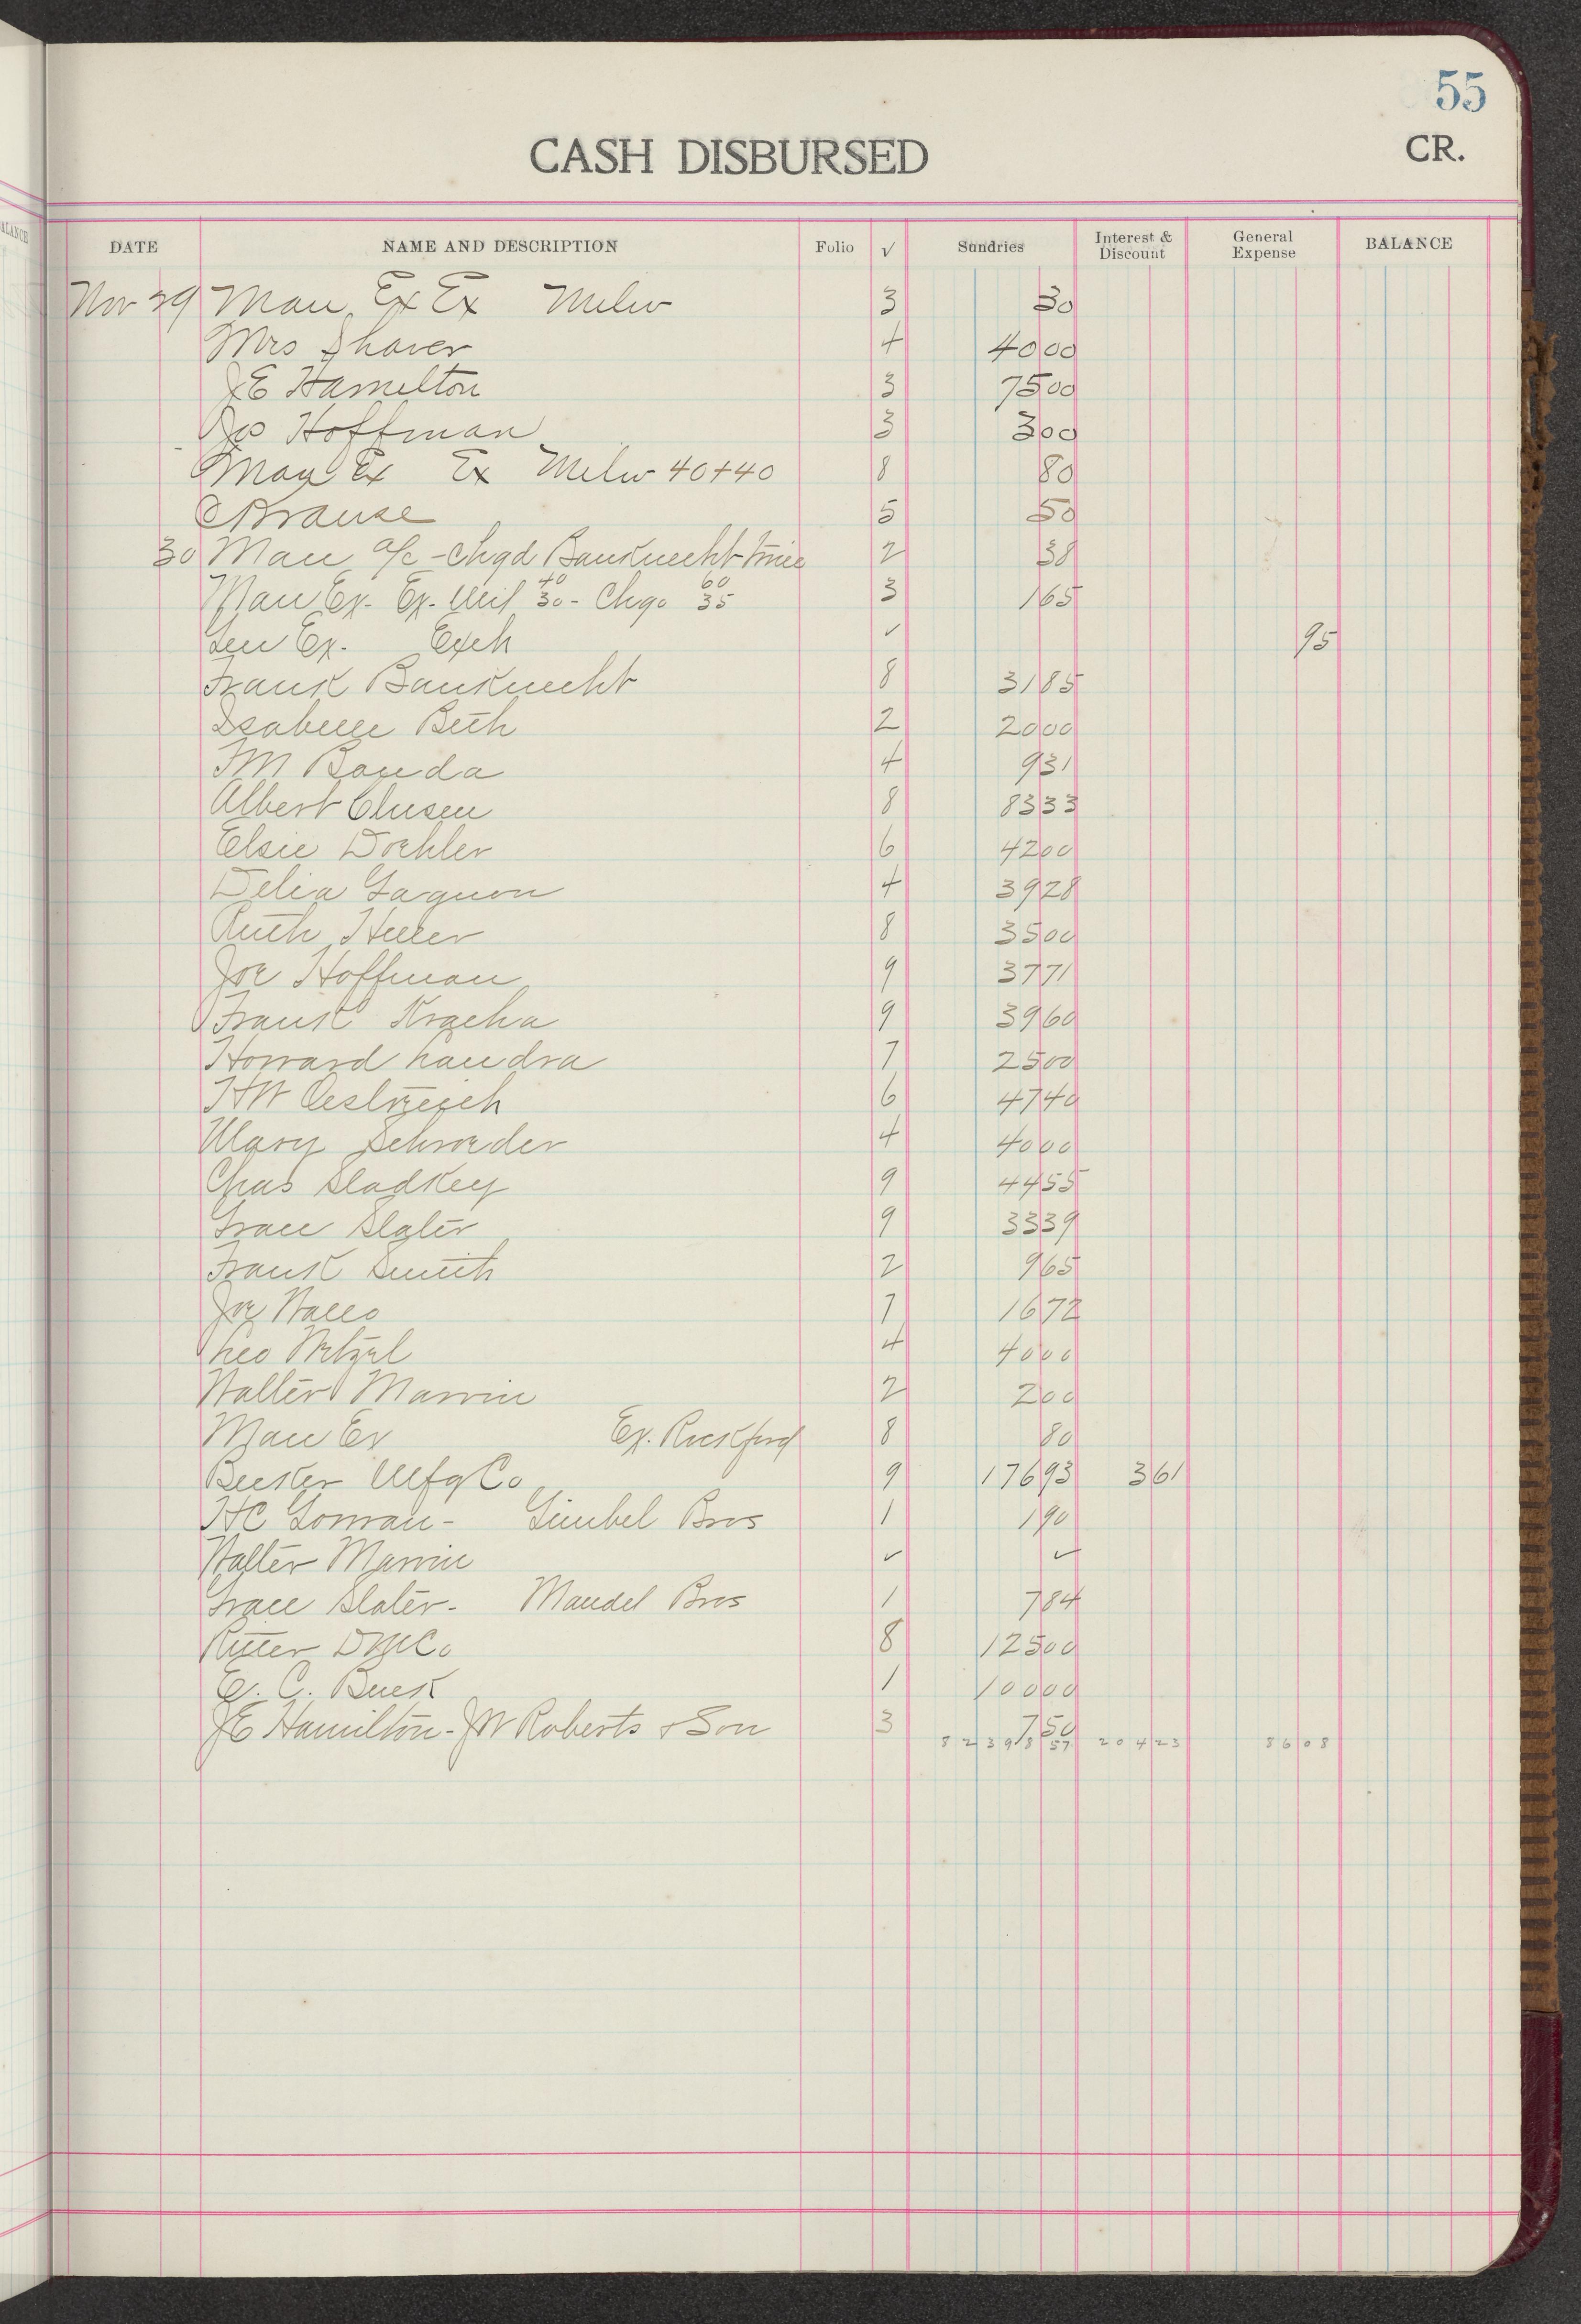 55
CASH DISBURSED CR.
DATE NAME AND DESCRIPTION Folio √ Sundries Interest & Discount General Expense BALANCE
Nov 29 Man Ex Ex Milw 3 30
Mrs Shaver 4 4000
JE Hamelton 3 7500
Jos Hoffman 3 300
Man Ex Ex Milw 40+40 8 80
C Krause 5 50
30 Man a/c - Chgd Bauknecht twice 2 38
Man Ex. Ex. Mil 40 30 - Chgo 60 35 3 165
Gen Ex. Exch ✓ 95
Frank Bauknecht 8 3185
Isabelle Beth 2 2000
FM Bouda 4 931
Albert Clusen 8 8333
Elsie Doehler 6 4200
Delia Gagnon 4 3928
Ruth Heller 8 3500
Joe Hoffman 9 3771
Frank Kracha 9 3960
Howard Landra 7 2500
HW Oestreich 6 4740
Mary Schroeder 4 4000
Chas Sladkey 9 4455
Grace Slater 9 3339
Frank Smith 2 965
Joe Wallo 7 1672
Leo Wetzel 4 4000
Walter Marvin 2 200
Man Ex Ex. Rockford 8 80
Mfg Co 9 17693 361
HC Gorman - Gimbel Bros 1 190
Walter Marvin ✓ ✓
Grace Slater - Mandel Bros 1 784
Ritter DMCo 8 12500
E. C. Buck 1 10000
JE Hamilton - JW Roberts & Son 3 750
8239857 20423 8608